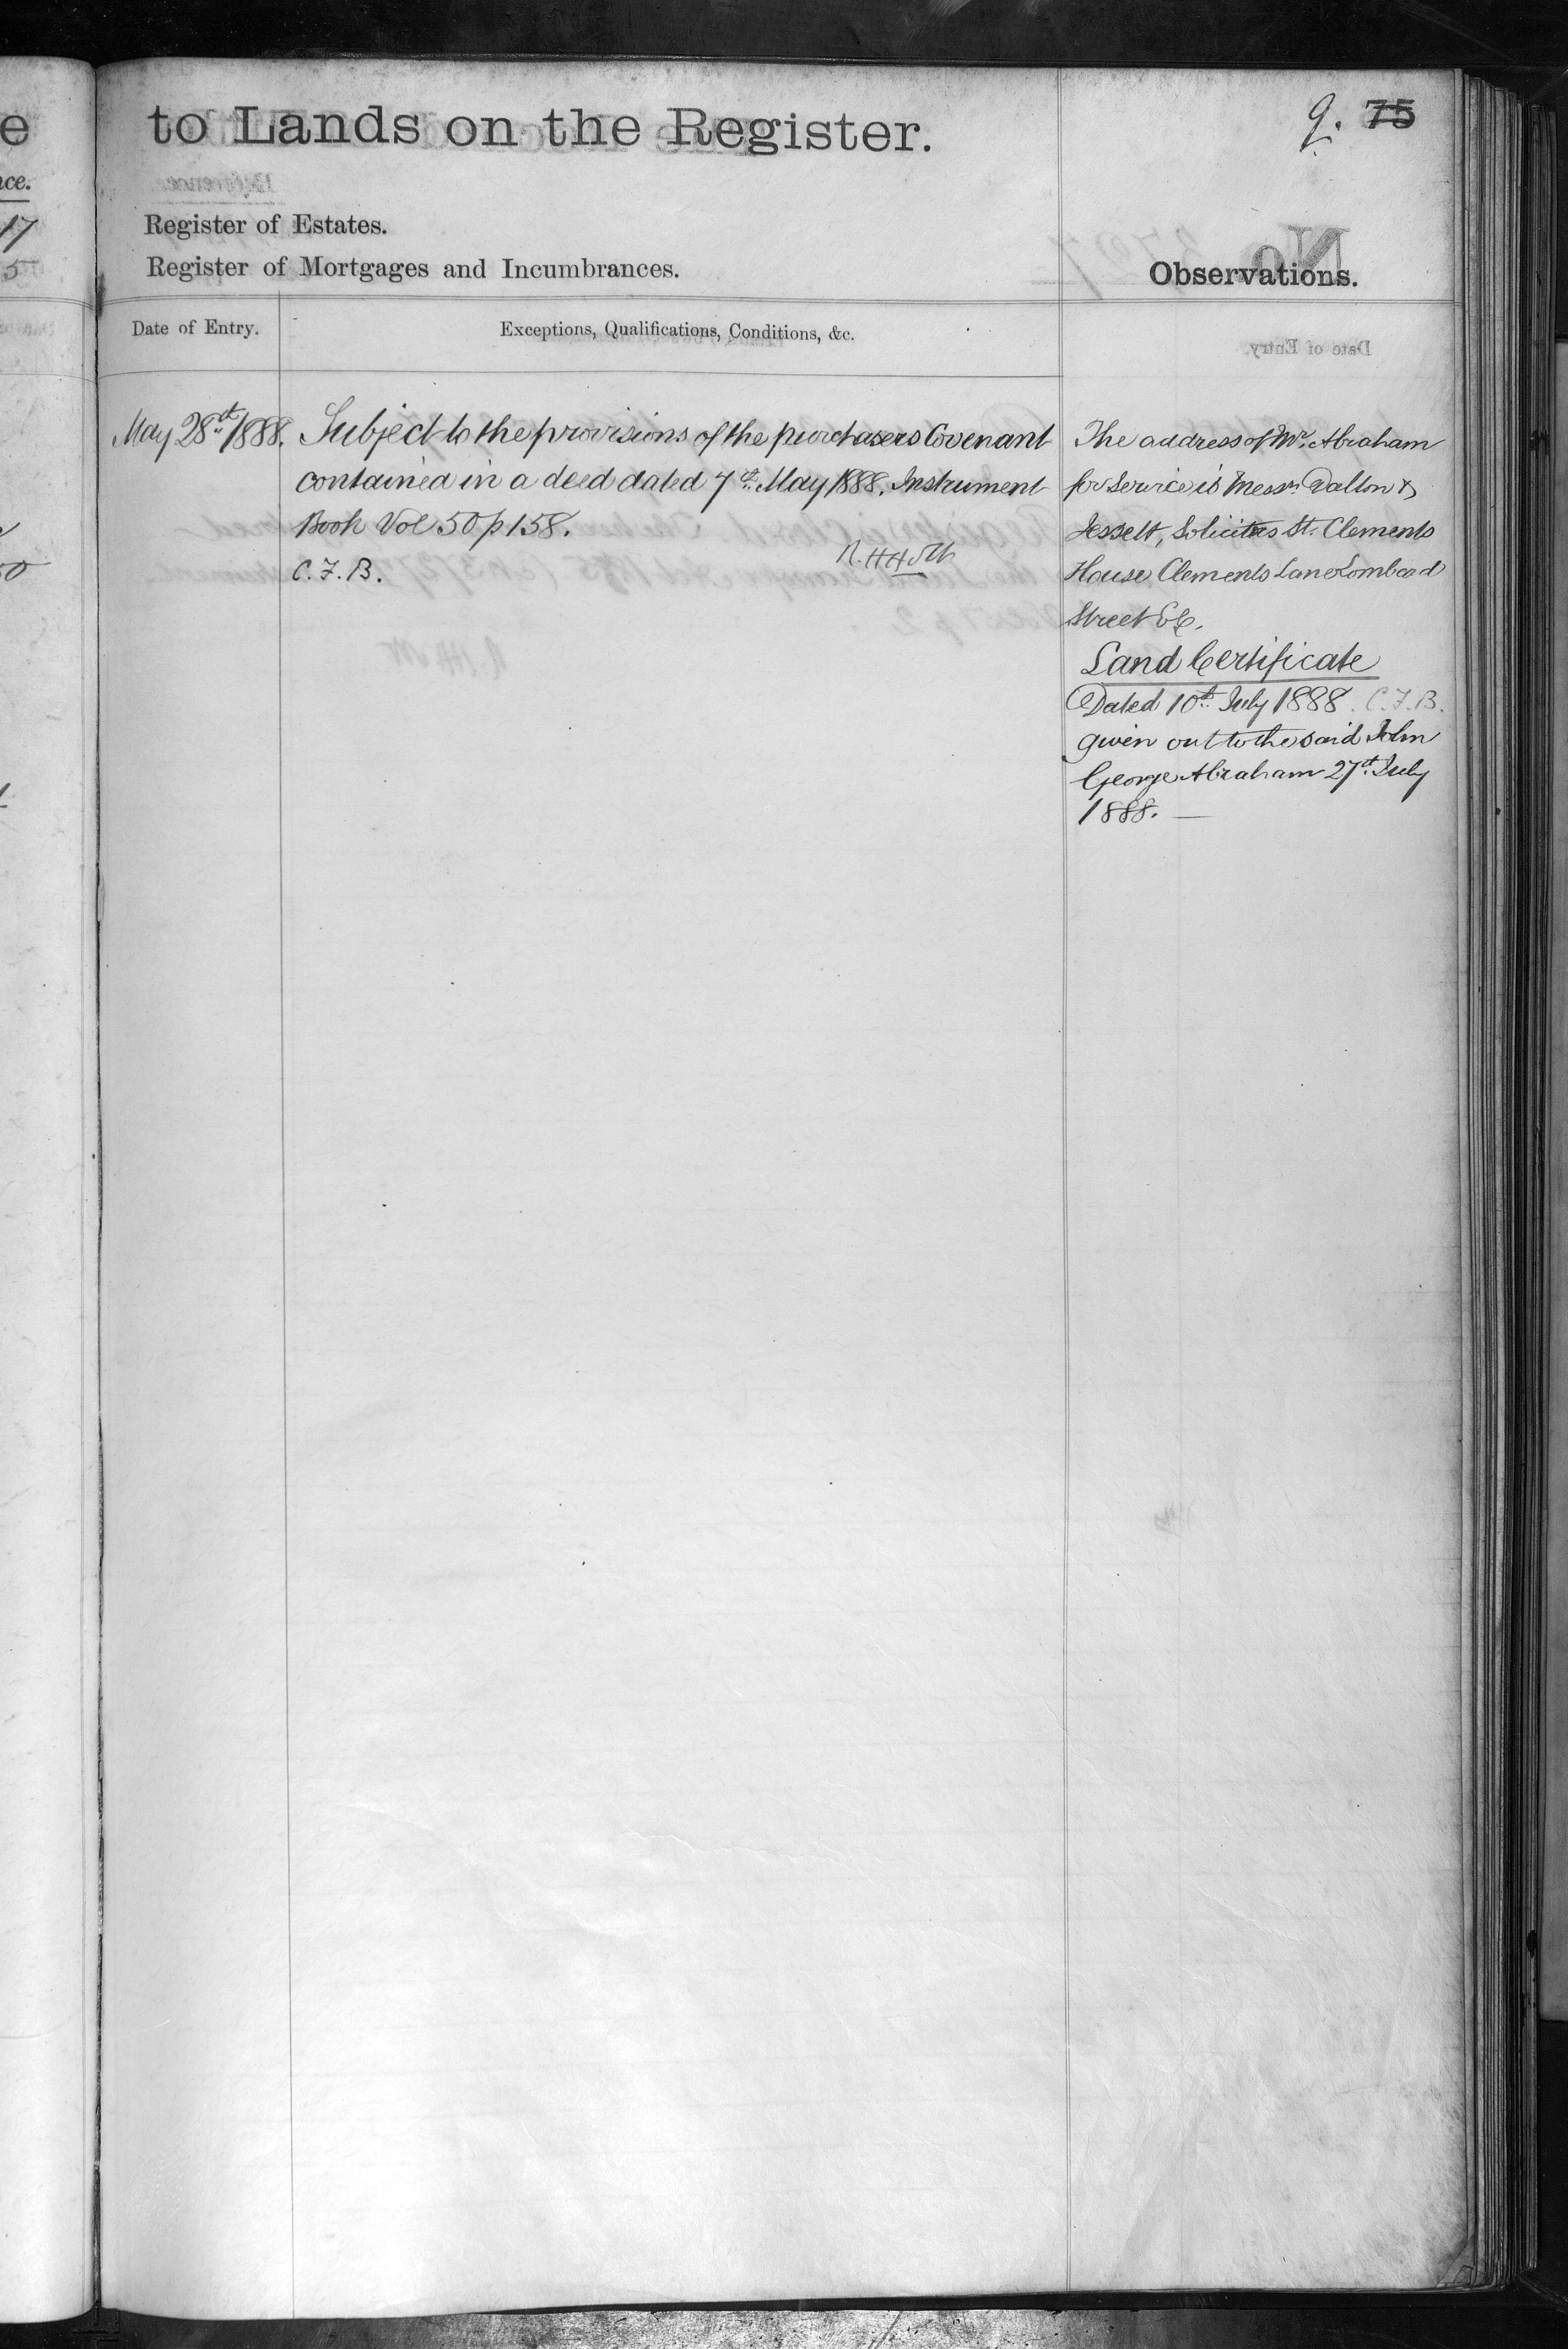 to Lands on the Register.
9. 75
Register of Estates.
Register of Mortgages and Incumbrances.
Observations.
Date of Entry.
Exceptions, Qualifications, Conditions, &c.
May 28th 1888.
Subject to the provisions of the purchasers Covenant
contained in a deed dated 7th May 1888. Instrument
Book Vol 50 p 158.
C.F.B.
The address of Mr. Abraham
for service is Messrs Dalton &
Jessett, Solicitors St. Clements
House Clements Lane Lombard
Street E.C.
Land Certificate
Dated 10th July 1888. C.F.B.
given out to the said John
George Abraham 27th July
1888.